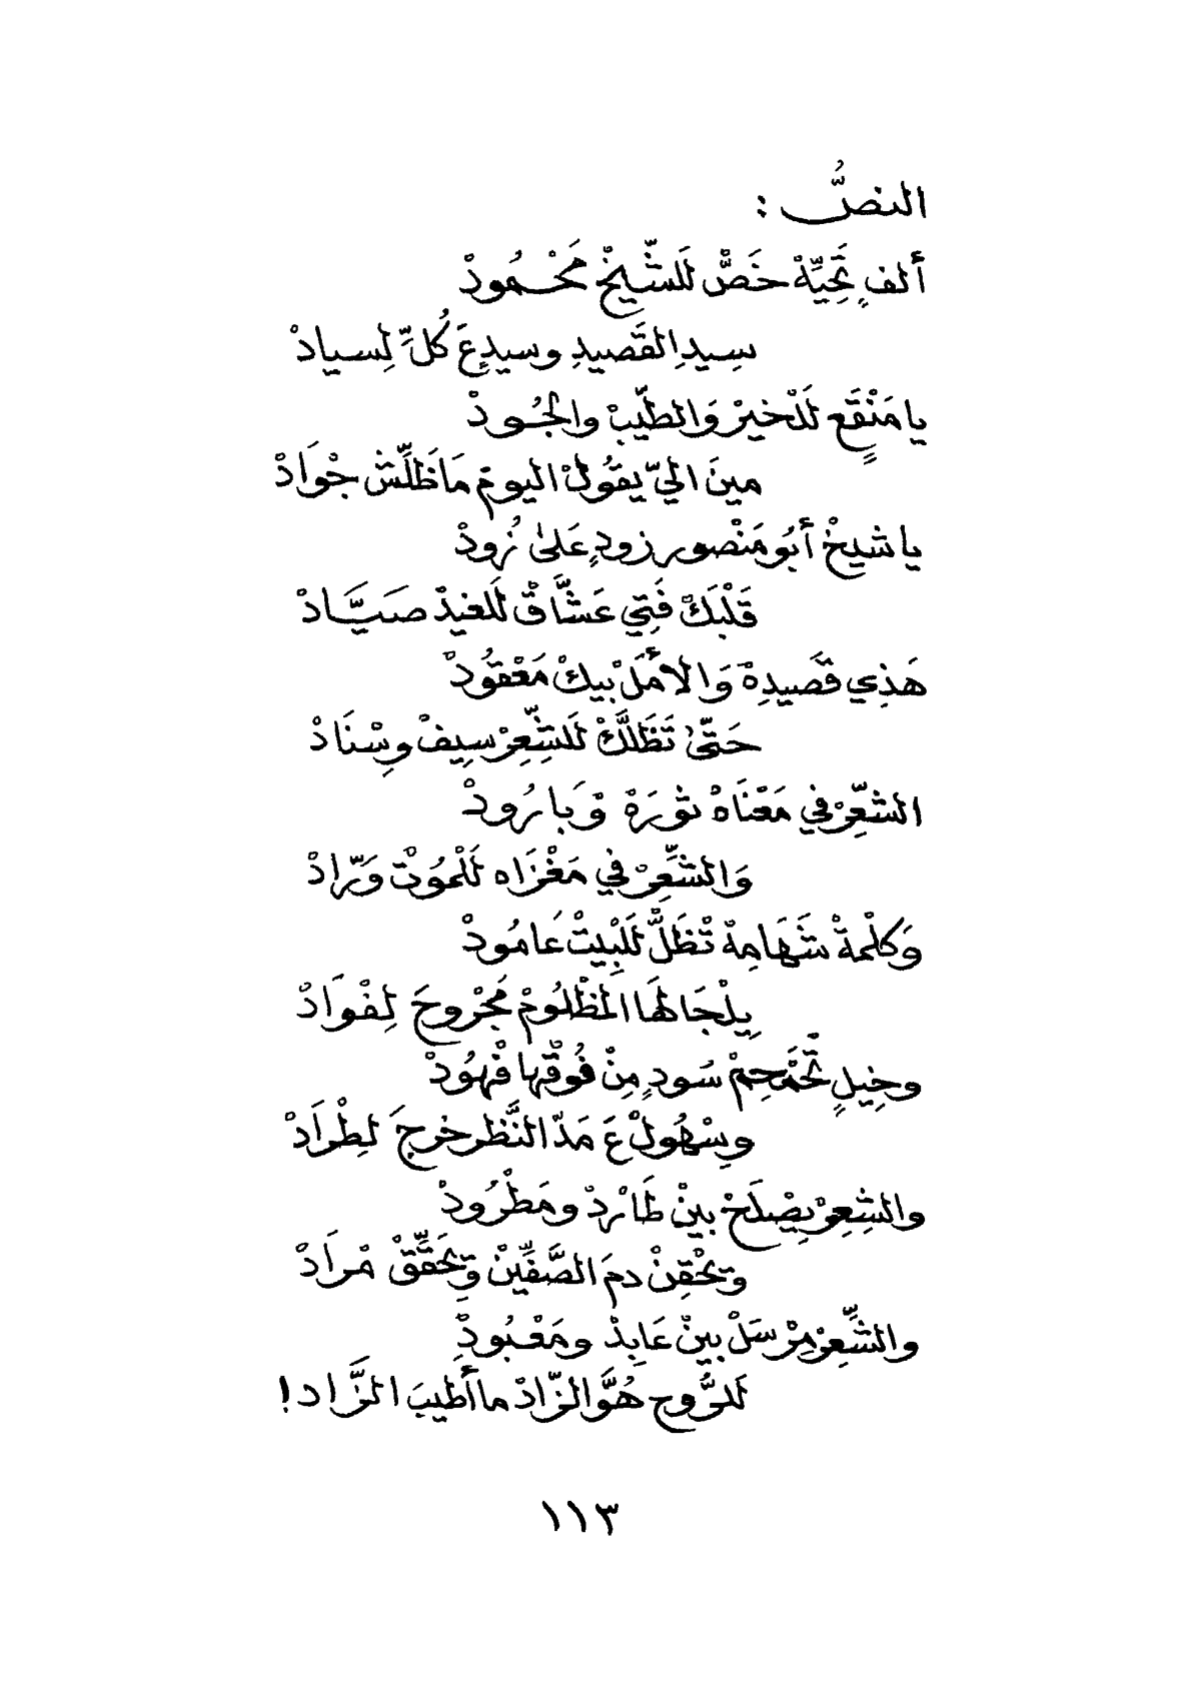 النصُّ :
ألفِ تَحِيِّةْ خَصّْ لَلشّيخْ مَحْمُودْ
سِيدِ القَصيدِ وسيدِ عَ كُلِّ لِسيادْ
يا مَنْقَعٍ لَلْخيرْ وَالطّيبْ والجُودْ
مينَ اليّ يقُولْ اليومْ مَا ظَلِّشْ جْوَادْ
يا شيخْ أبُو مَنْصور زودٍ عَلىٰ زُودْ
قَلْبَكْ فَتِي عَشَّاقْ لَلغيدْ صَيَّادْ
هَذِي قَصَيدِةْ وَالأَمَلْ بيكْ مَعْقُودْ
حَتّىٰ تَظَلَّكْ لَلشِّعِرْ سِيفْ وِسْنَادْ
الشعِّرْ في مَعْنَاهْ ثورَةْ وْبَارُودْ
وَالشِّعِرْ في مَغْزَاه لَلْمُوْتْ وَرّادْ
وَكلْمةْ شَهَامِةْ تْظَلّْ لَلْبِيتْ عَامُودْ
يِلْجَا لهَا المَظْلُومْ مَجْروحَ لِفْوَادْ
وخِيلٍ تْحَمْحِمْ سُودٍ مِنْ فُوْقْها فْهُودْ
وِسْهُولْ عَ مَدّ النَّظر خرجَ لطْرَادْ
والشِعِرْ بِصْلَحْ بينْ طَارْدْ ومَطْرُودْ
وتحْقِنْ دمَ الصَّفِّينْ وِتْحَقِّقْ مْرَادْ
والشِّعِرْ مِرْسَلْ بينْ عَابِدْ ومَعْبُودْ
لَلرُّوح هُوَّ الزّادْ ما أطيبَ الزَّاد !
١١٣